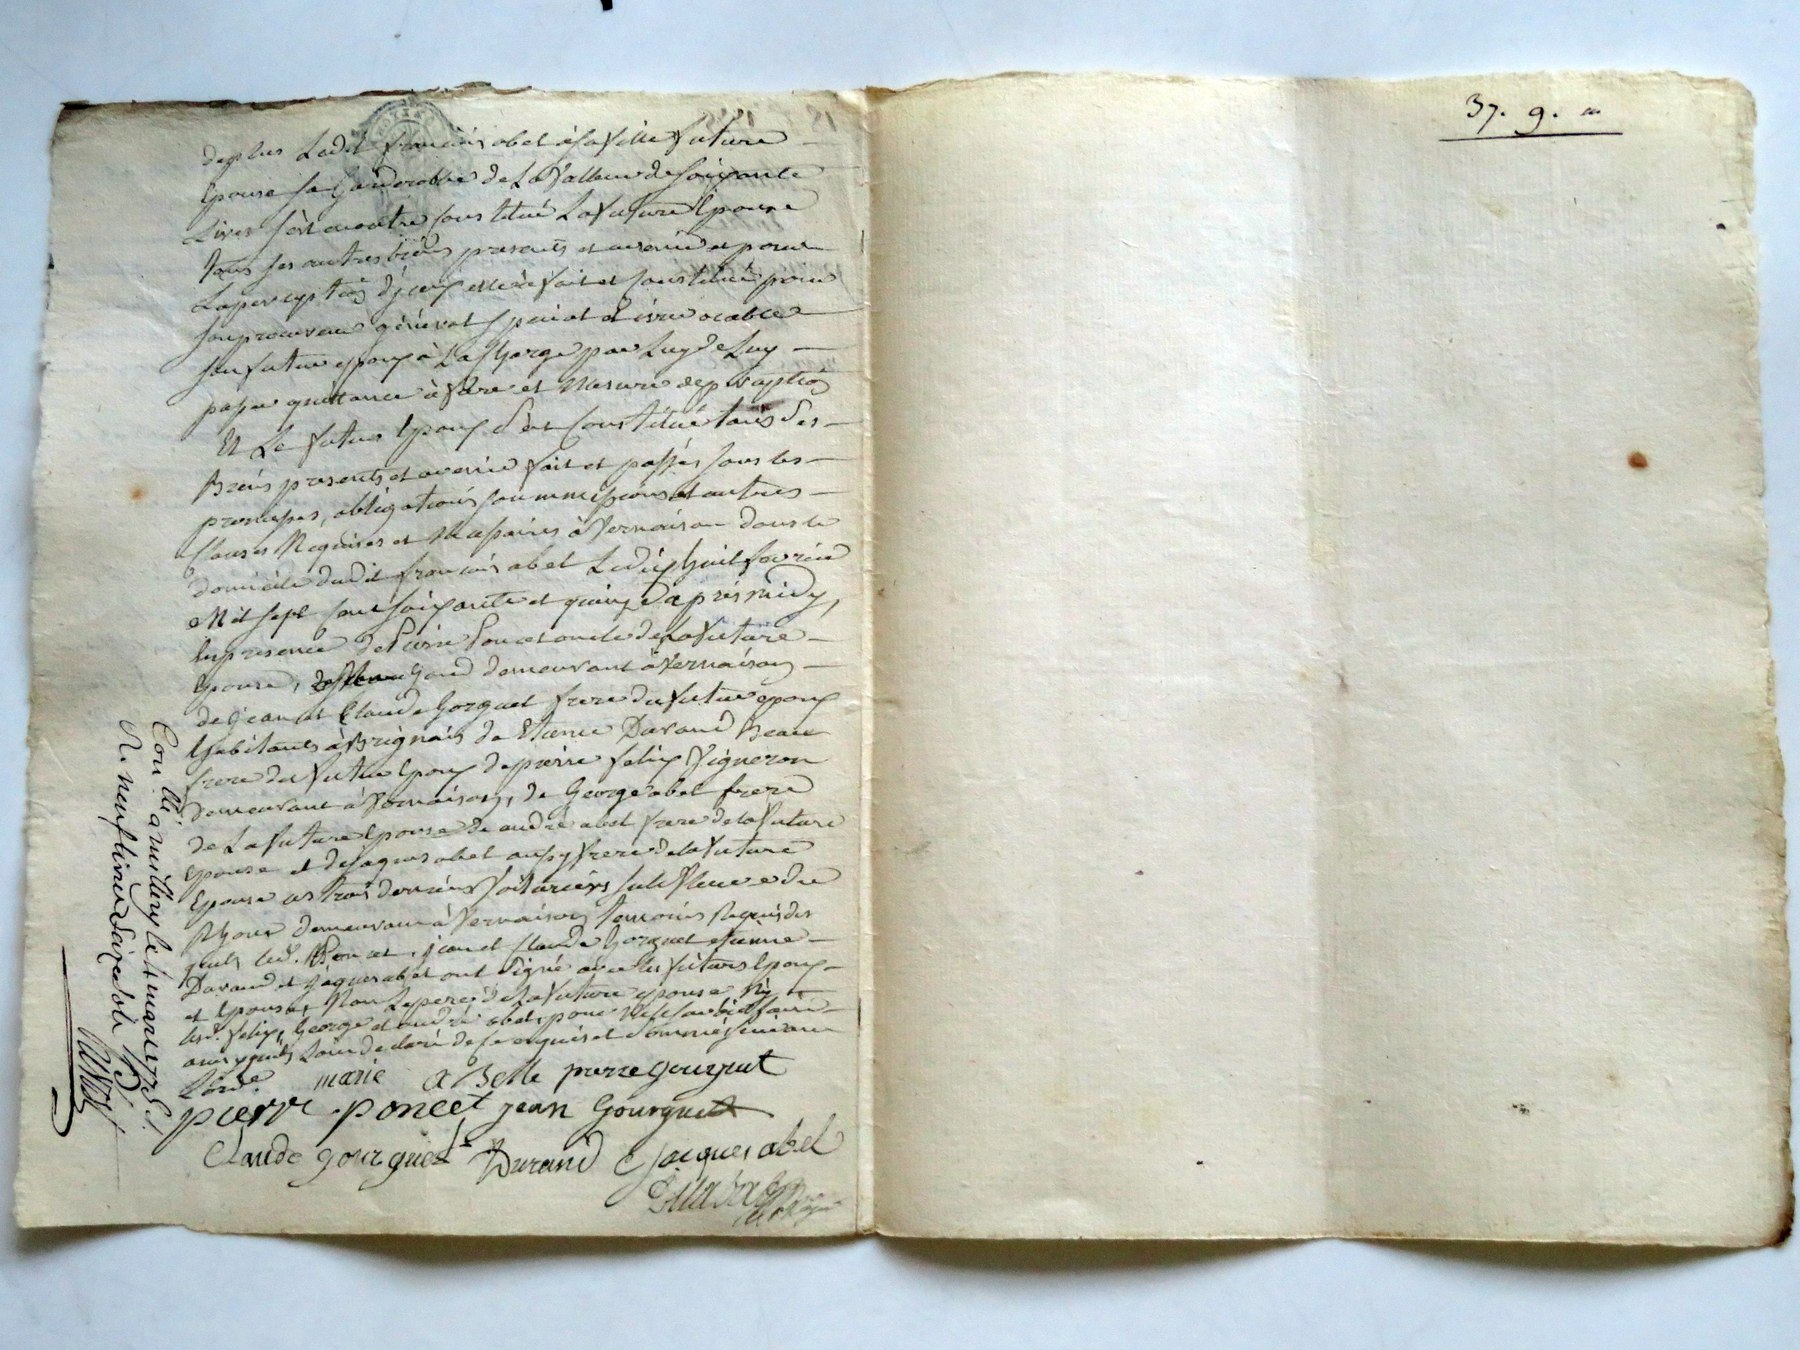 37. 9. "
de plus Ledit françois abel à sa fille future
Epouse sa Garderobbe de La Valleur de soixante
Livres s'est en outre Constitué La future Epouse
tous ses autres biens presents et avenir et pour
La perception d'iceux elle à fait et Constitué pour
son procureur général special et irrévocable
son futur epoux à La Charge par Luy de Luy
passer quittance à fure et Mesure de perception
Et Le futur Epoux s'est Constitué tous ses
Biens presents et avenir fait et passé sous les
promesses, obligations soummissions et autres
Clauses Requises et Necessaires à Vernaison dans le
domicile dudit françois abel Le dix huit fevrier
Mil sept Cent soixante et quinze après midy,
En presence de Pierre Poncet oncle de La future
Epouse, demeurant à Vernaison
de Jean et Claude Gorguet frere du futur epoux
habitants à Brignais de Etienne Durand Beau
frere du futur Epoux de pierre felix Vigneron
demeurant à Vernaison, de George abel frere
de La future Epouse de andré abel frere de la future
epouse et de Jaques abel aussy frere de la future
Epouse ces trois derniers Voituriers sur le fleuve du
Rhone demeurant à Vernaison temoins Requis des
quels led. Poncet, jean et Claude Gorguet etienne
Durand et Jaques abel ont signé avec les futurs Epoux
et Epouse, Non Le pere de La future epouse ny
lesd. felix, George et andré abel, pour ne le savoir faire
ainsy qu'ils L'ont declaré de ce enquis et sommés suivant
L'ord.e
marie abelle pierre gourguet
pierre poncet jean Gourguet
Claude gourguet Durand Jacques abel
Con.llé à millery le 4 mars 1775.
R. neuf livres seize sols